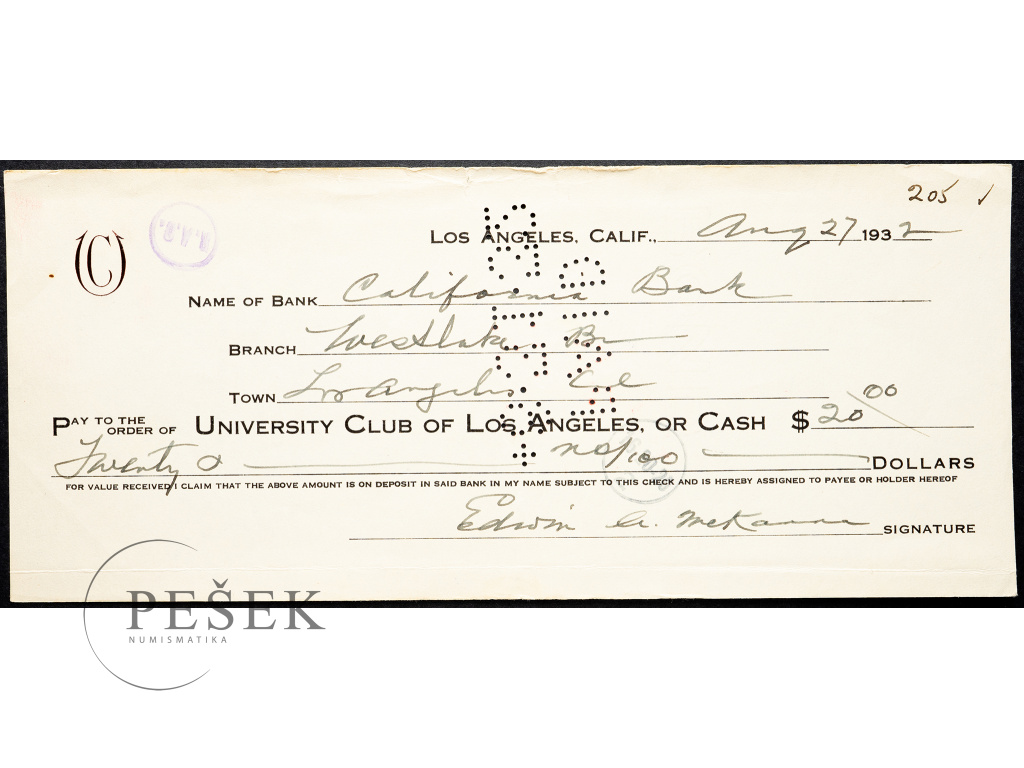 205 ✓
Los Angeles, Calif., Aug 27 1932
Name of Bank California Bank
Branch Westlake Br
Town Los Angeles Cal
Pay to the order of University Club of Los Angeles, or Cash $ 20 00
Twenty & no/100 Dollars
For value received I claim that the above amount is on deposit in said bank in my name subject to this check and is hereby assigned to payee or holder hereof
Edwin A. McKanna Signature
PEŠEK
NUMISMATIKA